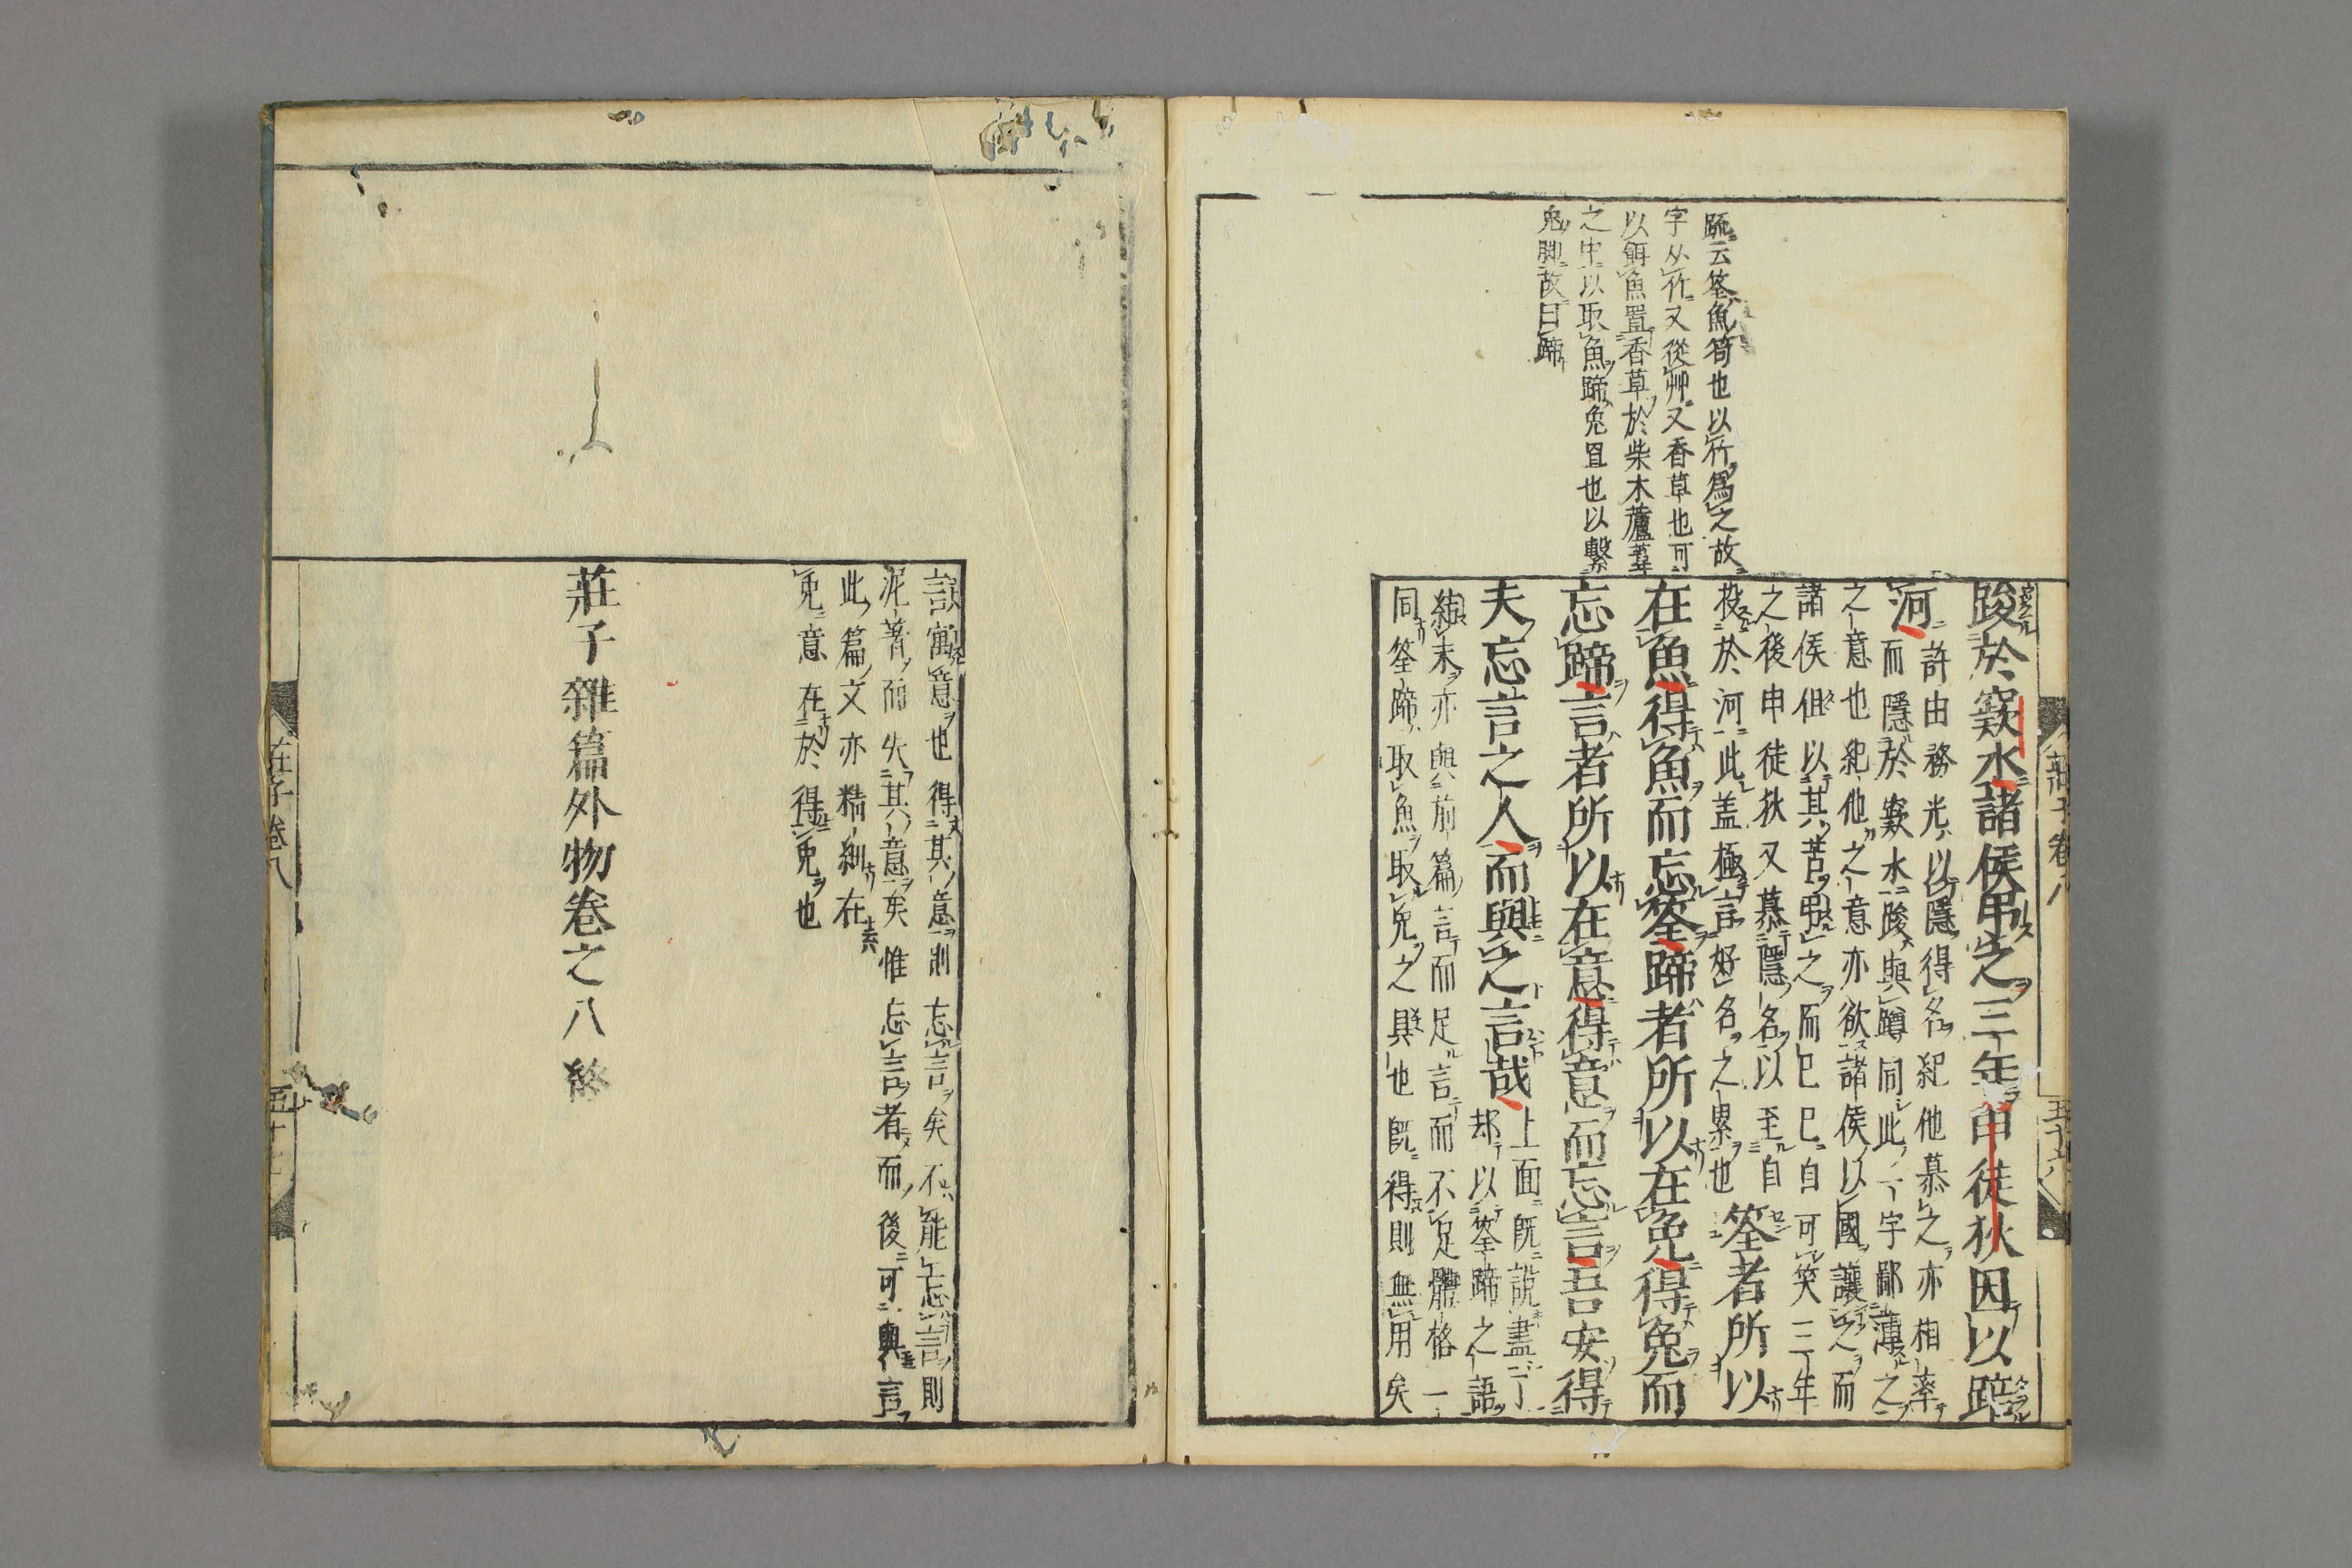 疏云筌魚笱也以竹爲之故
字从竹又從艸又香草也可
以餌魚置香草於柴木蘆葦
之中以取魚蹄兔罝也以繫
兔脚故曰蹄
莊子卷八
五十六
踆於窾水諸侯弔之三年申徒狄因以踣
河
許由務光以隱得名紀他慕之亦相率
而隱於窾水踆與蹲同此一字鄙薄之
之意也紀他之意亦欲諸侯以國讓之而
諸侯但以其苦弔之而已已自可笑三年
之後申徒狄又慕隱名以至自
投於河此盖極言好名之累也
筌者所以
在魚得魚而忘筌蹄者所以在兔得兔而
忘蹄言者所以在意得意而忘言吾安得
夫忘言之人而與之言哉
上面既説盡了
却以筌蹄之語
結末亦與前篇言而足言而不足體格一
同筌蹄取魚取兔之具也既得則無用矣
言寓意也得其意則忘言矣不能忘言則
泥著而失其意矣惟忘言者而後可與言
此篇文亦精細在
兔意在於得兔也
莊子雜篇外物卷之八終
莊子卷八